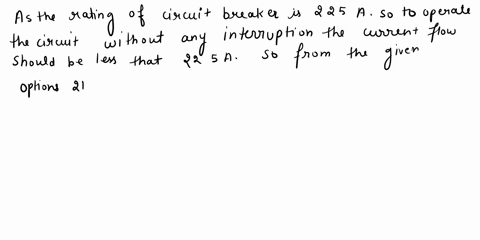 As the rating of circuit breaker is 225 A. so to operate
the circuit without any interruption the current flow
should be less that 225A. so from the given
options 21